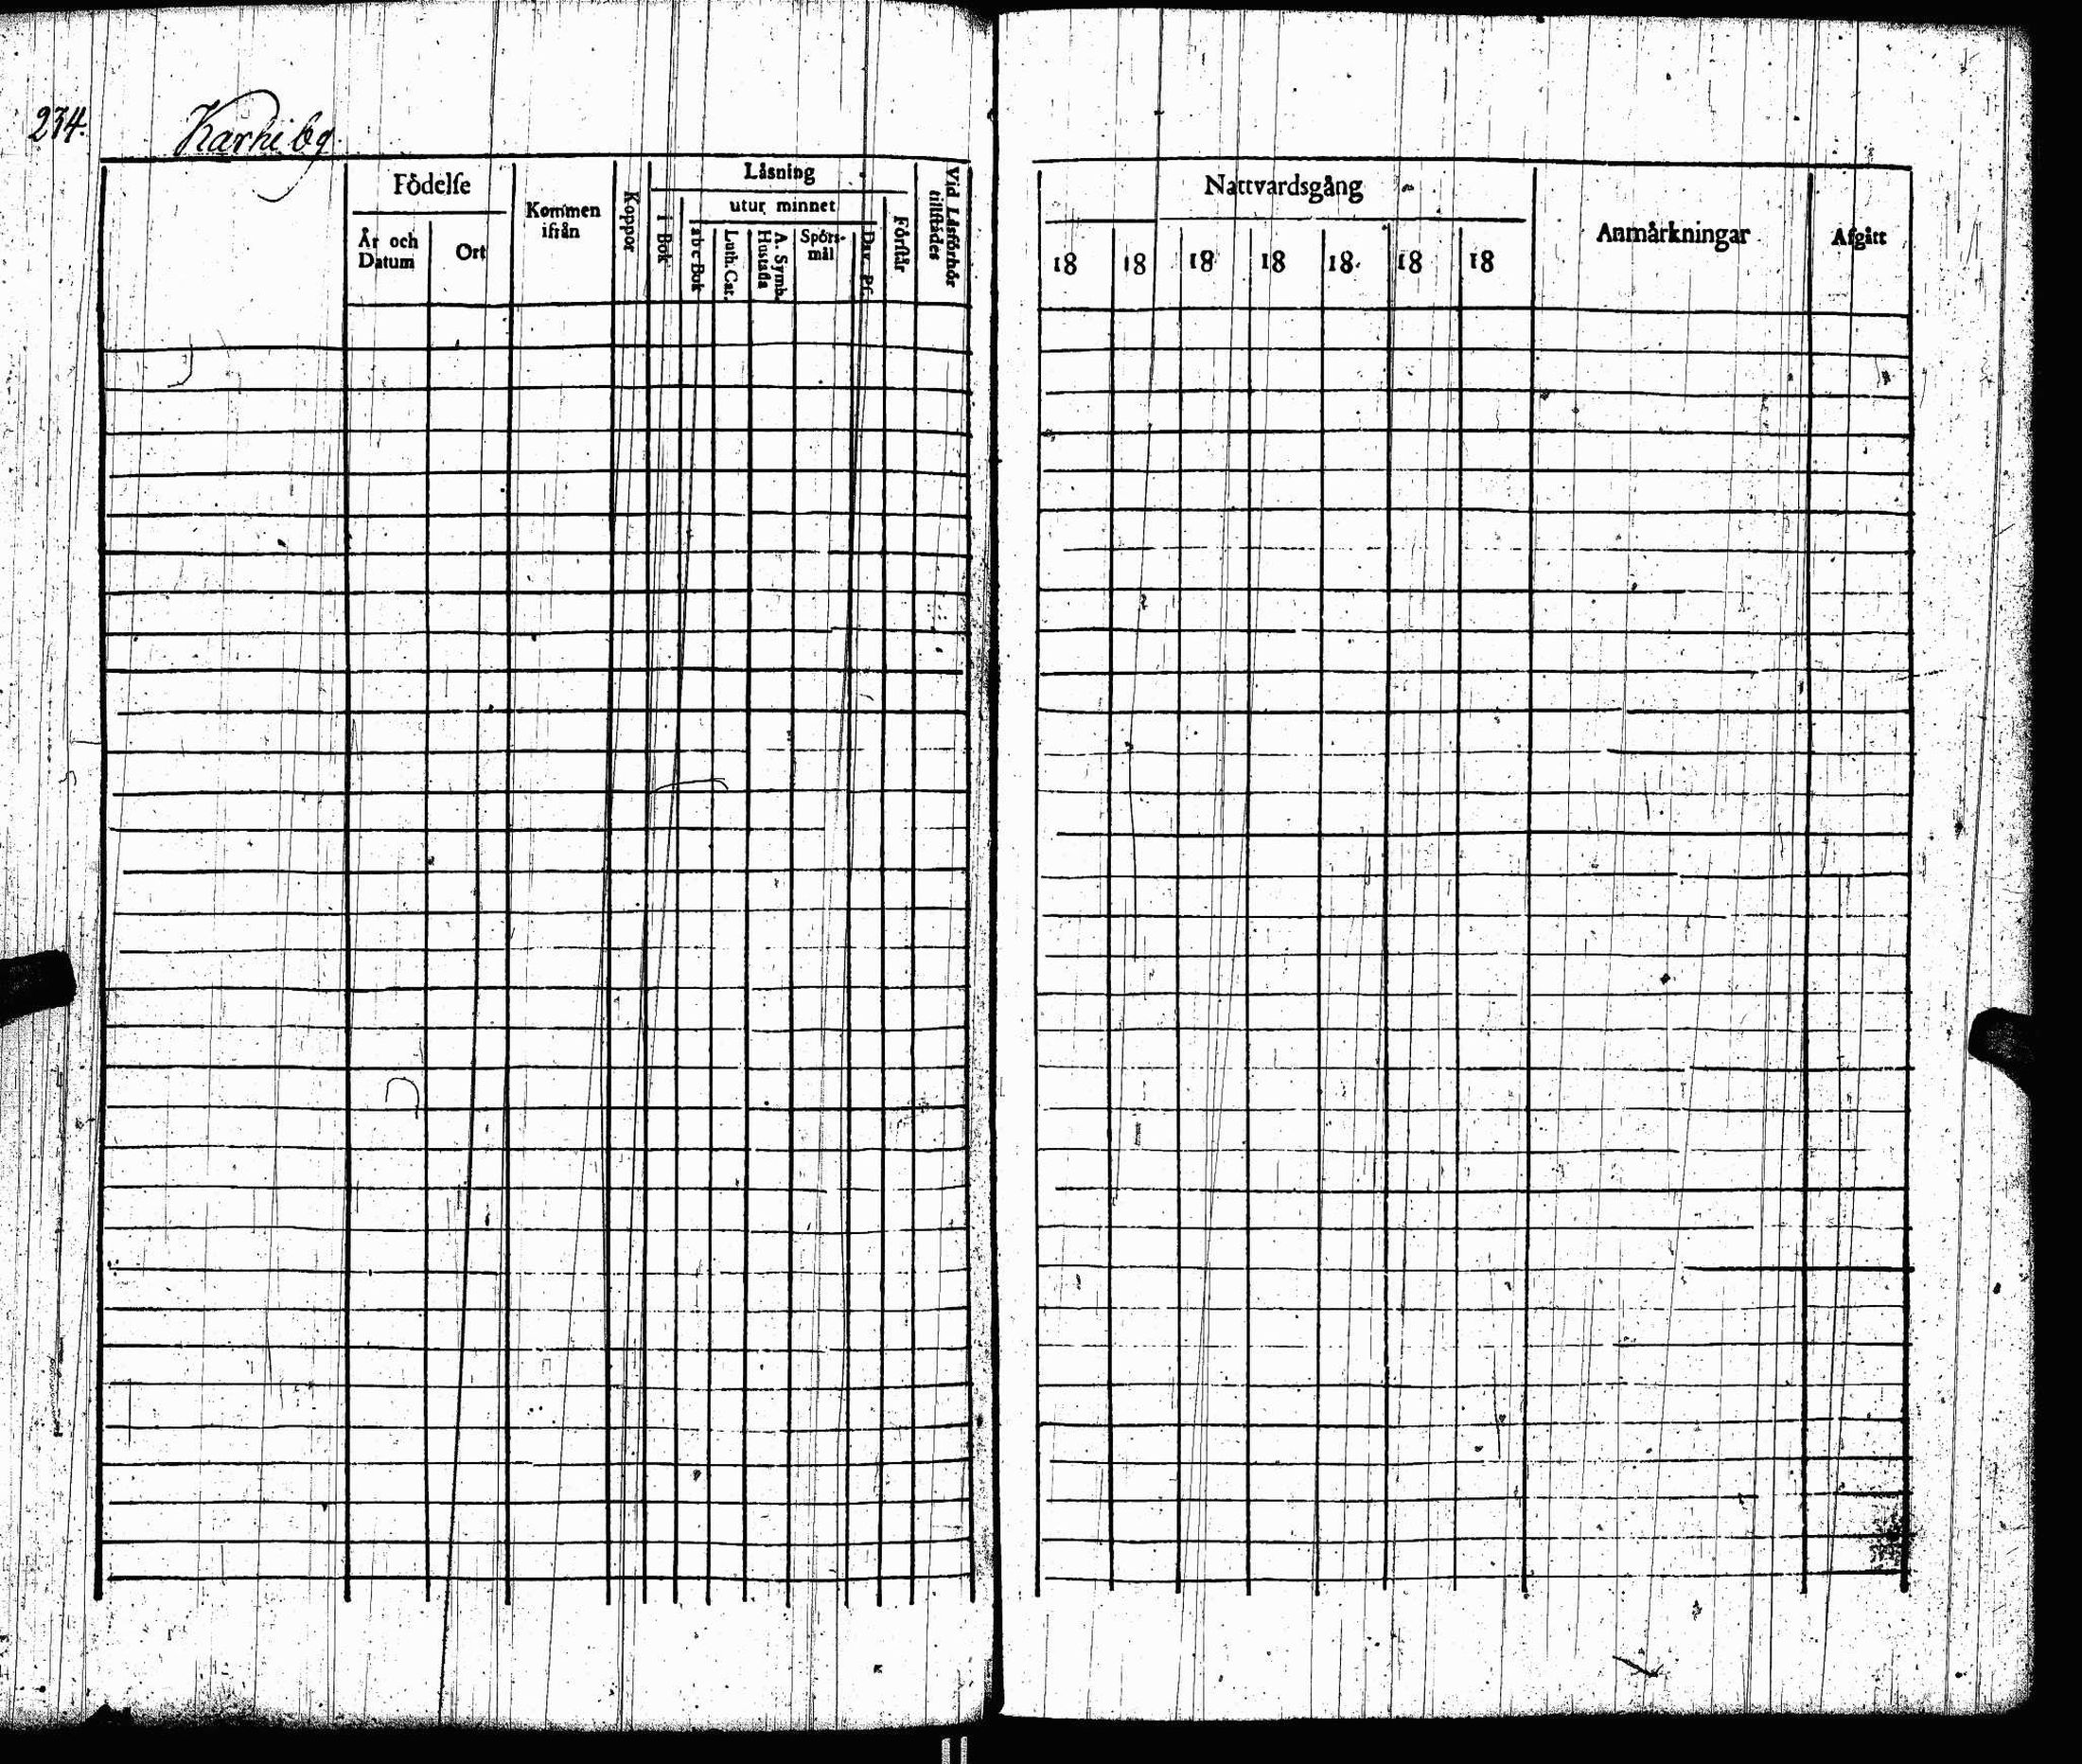 234.
Karhi by
Födelse
År och Datum
Ort
Kommen ifrån
Koppor
Läsning
i Bok
utur minnet
a b c Bok
Luth. Cat.
A. Symb. Hustafla
Spörsmål
Dav. Ps.
Förstår
Vid Läsförhör tillstädes
Nattvardsgång
18 18 18 18 18 18 18
Anmärkningar
Afgått